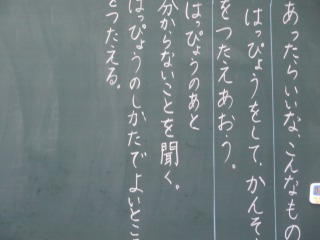 あったらいいな、こんなもの
はっぴょうをして、かんそ
をつたえあおう。
はっぴょうのあと
分からないことを聞く。
はっぴょうのしかたでよいところ
をつたえる。